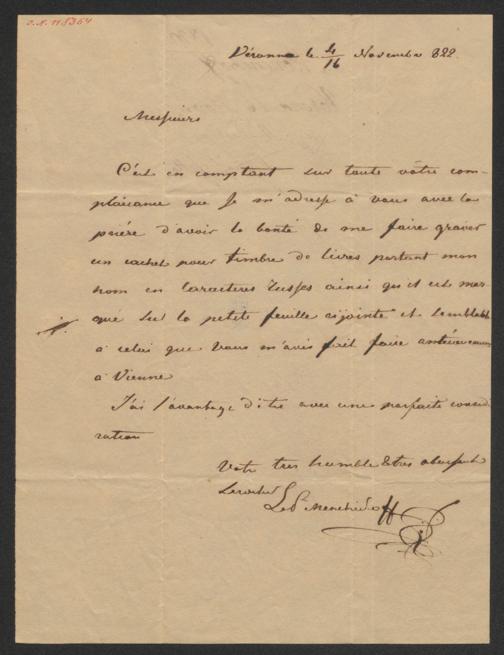 J.N. 118364
Véronne le 4/16 Novembre 822
Messieurs
C'est en comptant sur toute vôtre com-
plaisance que je m'adresse à vous avec la
prière d'avoir la bonté de me faire graver
un cachet pour timbre de livres portant mon
nom en caractères Russes ainsi qu'il est mar-
qué sur la petite feuille cijointe et semblable
à celui que vous m'avés fait faire antérieurement
à Vienne
J'ai l'avantage d'être avec une parfaite consid-
ération
Votre très humble & très obéissant
Le Pce Menchicoff